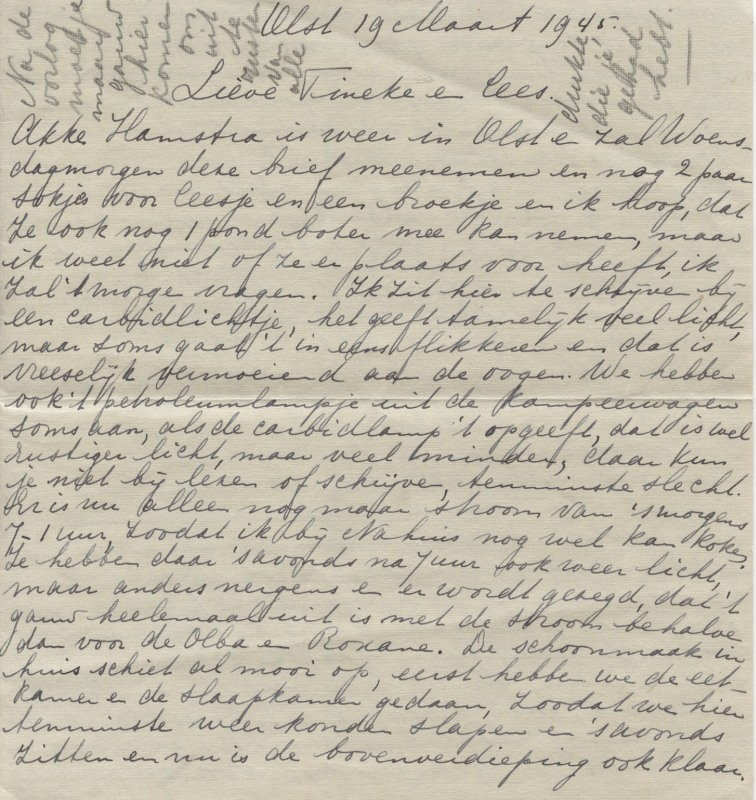 Na de
oorlog
moet je
maar
gauw
hier
komen
om
uit
te
rusten
van
alle
drukte,
die je
gehad
hebt.
Olst 19 Maart 1945.
Lieve Tineke en Cees.
Akke Hamstra is weer in Olst en zal Woens-
dagmorgen deze brief meenemen en nog 2 paar
sokjes voor Ceesje en een broekje en ik hoop, dat
ze ook nog 1 pond boter mee kan nemen, maar
ik weet niet of ze er plaats voor heeft, ik
zal 't morge vragen. Ik zit hier te schrijve bij
een carbidlichtje, het geeft tamelijk veel licht,
maar soms gaat 't in eens flikkeren en dat is
vreeselijk vermoeiend aan de oogen. We hebben
ook 't petroleumlampje uit de kampeerwagen
soms aan, als de carbidlamp 't opgeeft, dat is wel
rustiger licht, maar veel minder, daar kun
je niet bij lezen of schrijve, tenminste slecht.
Er is nu alleen nog maar stroom van 's morgens
7-1 uur, zoodat ik bij Nahuis nog wel kan koken.
Ze hebben daar 's avonds na 7 uur ook weer licht,
maar anders nergens en er wordt gezegd, dat 't
gauw heelemaal uit is met de stroom behalve
dan voor de Olba en Roxane. De schoonmaak in
huis schiet al mooi op, eerst hebben we de eet-
kamer en de slaapkamer gedaan, zoodat we hier
tenminste weer konden slapen en 's avonds
zitten en nu is de bovenverdieping ook klaar.